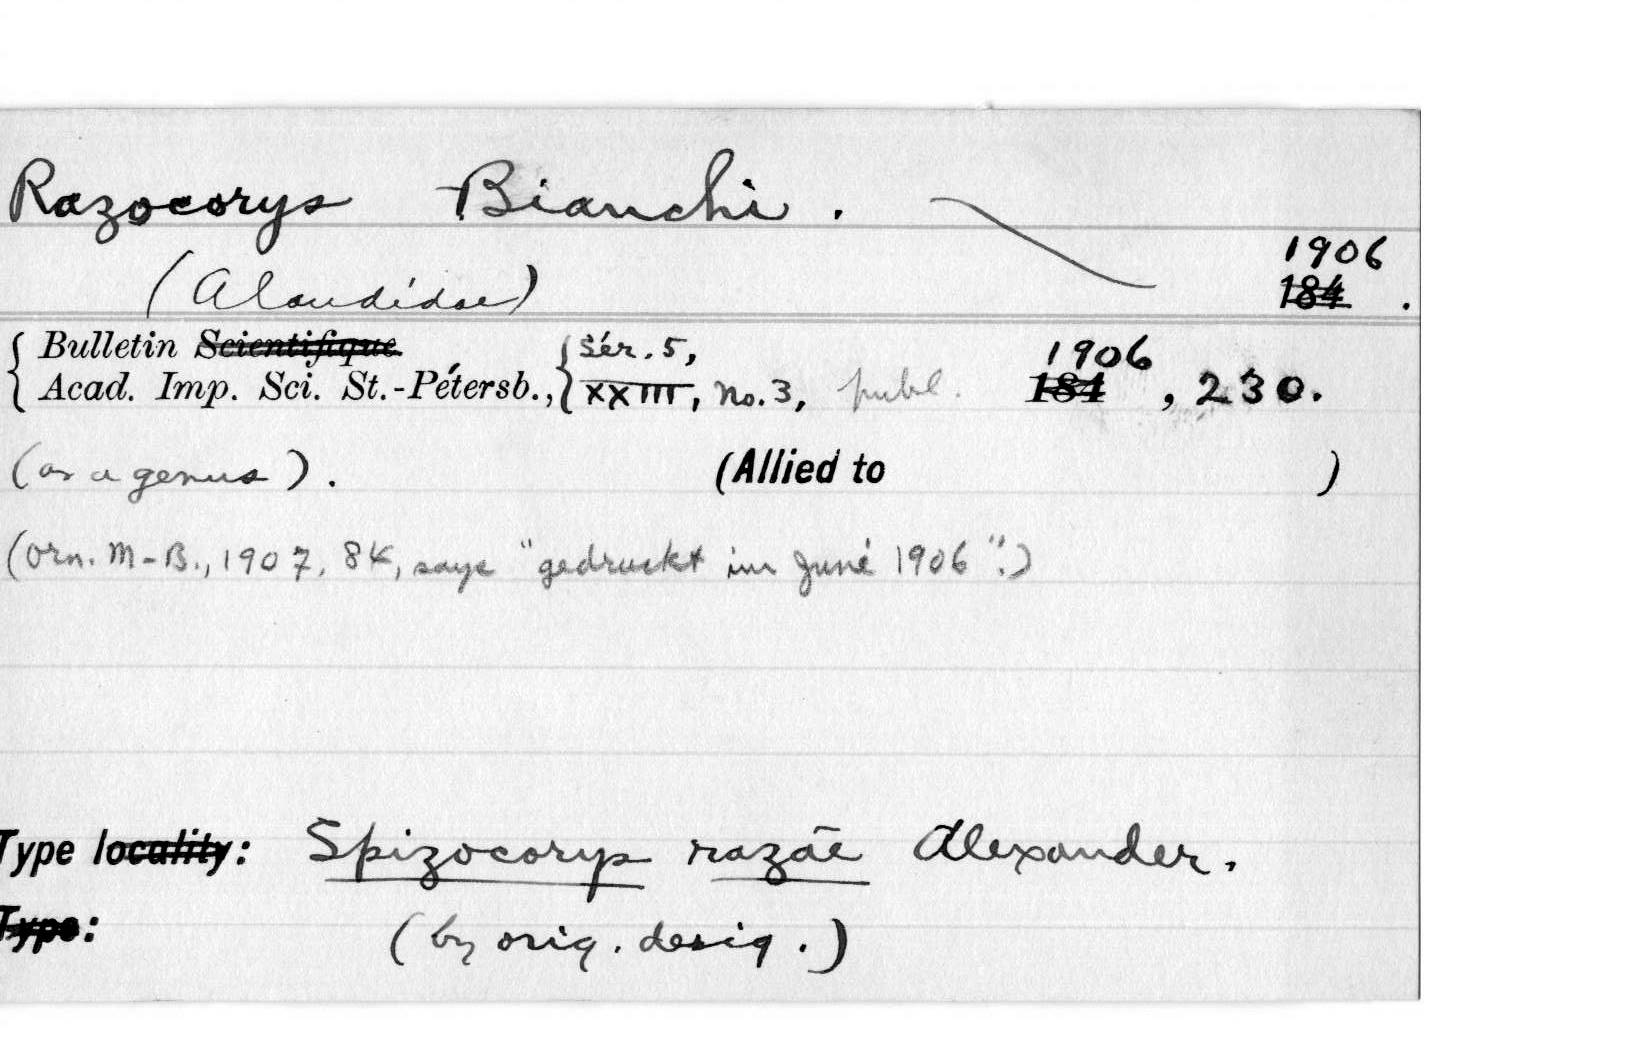 Razocorys Bianchi.
1906
(Alaudidae) 184.
Bulletin Scientifique Sér. 5, 1906
Acad. Imp. Sci. St.-Pétersb., XXIII, No. 3, publ. 184, 230.
(as a genus). (Allied to )
(Orn. M-B., 1907, 84, says "gedruckt im Juné 1906".)
Type locality: Spizocorys razāe Alexander.
Type: (by orig. desig.)